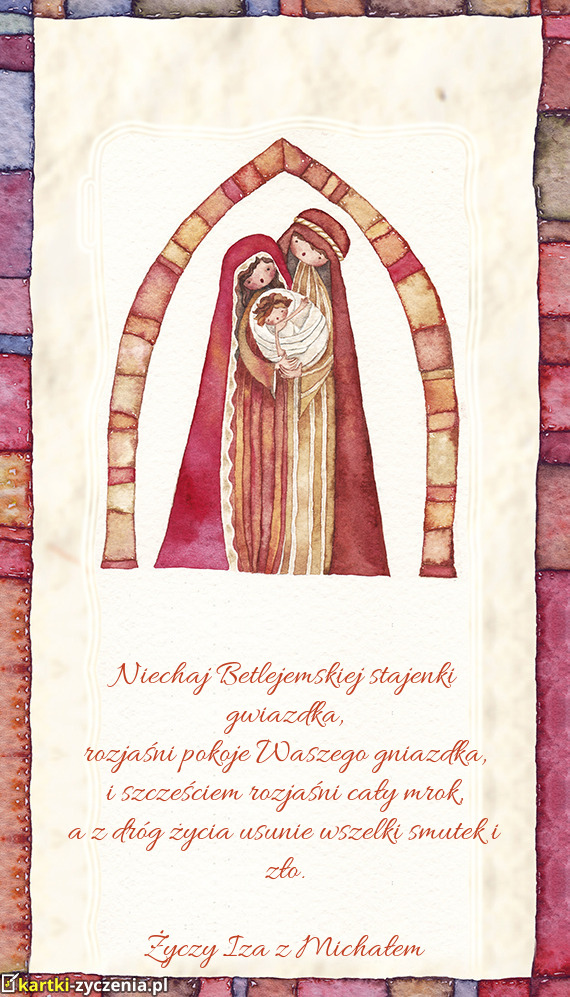 Niechaj Betlejemskiej stajenki
gwiazdka,
rozjaśni pokoje Waszego gniazdka,
i szczęściem rozjaśni cały mrok,
a z dróg życia usunie wszelki smutek i
zło.
Życzy Iza z Michałem
kartki-zyczenia.pl